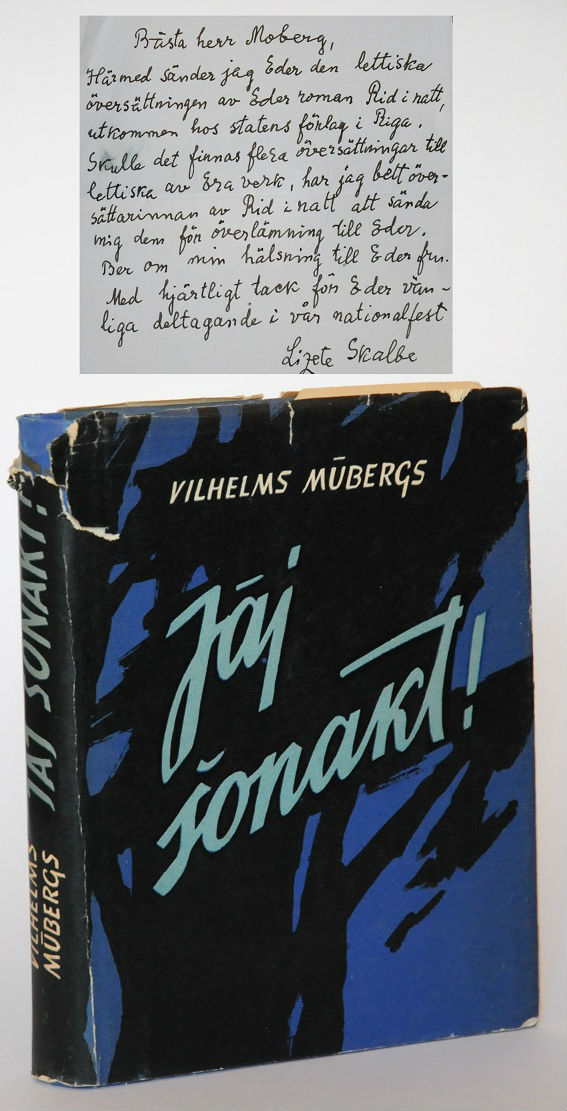 Bästa herr Moberg,
Härmed sänder jag Eder den lettiska
översättningen av Eder roman Rid i natt,
utkommen hos statens förlag i Riga.
Skulle det finnas flera översättningar till
lettiska av Era verk, har jag bett över-
sättarinnan av Rid i natt att sända
mig dem för överlämning till Eder.
Ber om min hälsning till Eder fru.
Med hjärtligt tack för Eder vän-
liga deltagande i vår nationalfest
Lizete Skalbe
VILHELMS MŪBERGS
Jāj
šonakt!
JĀJ ŠONAKT!
VILHELMS
MŪBERGS